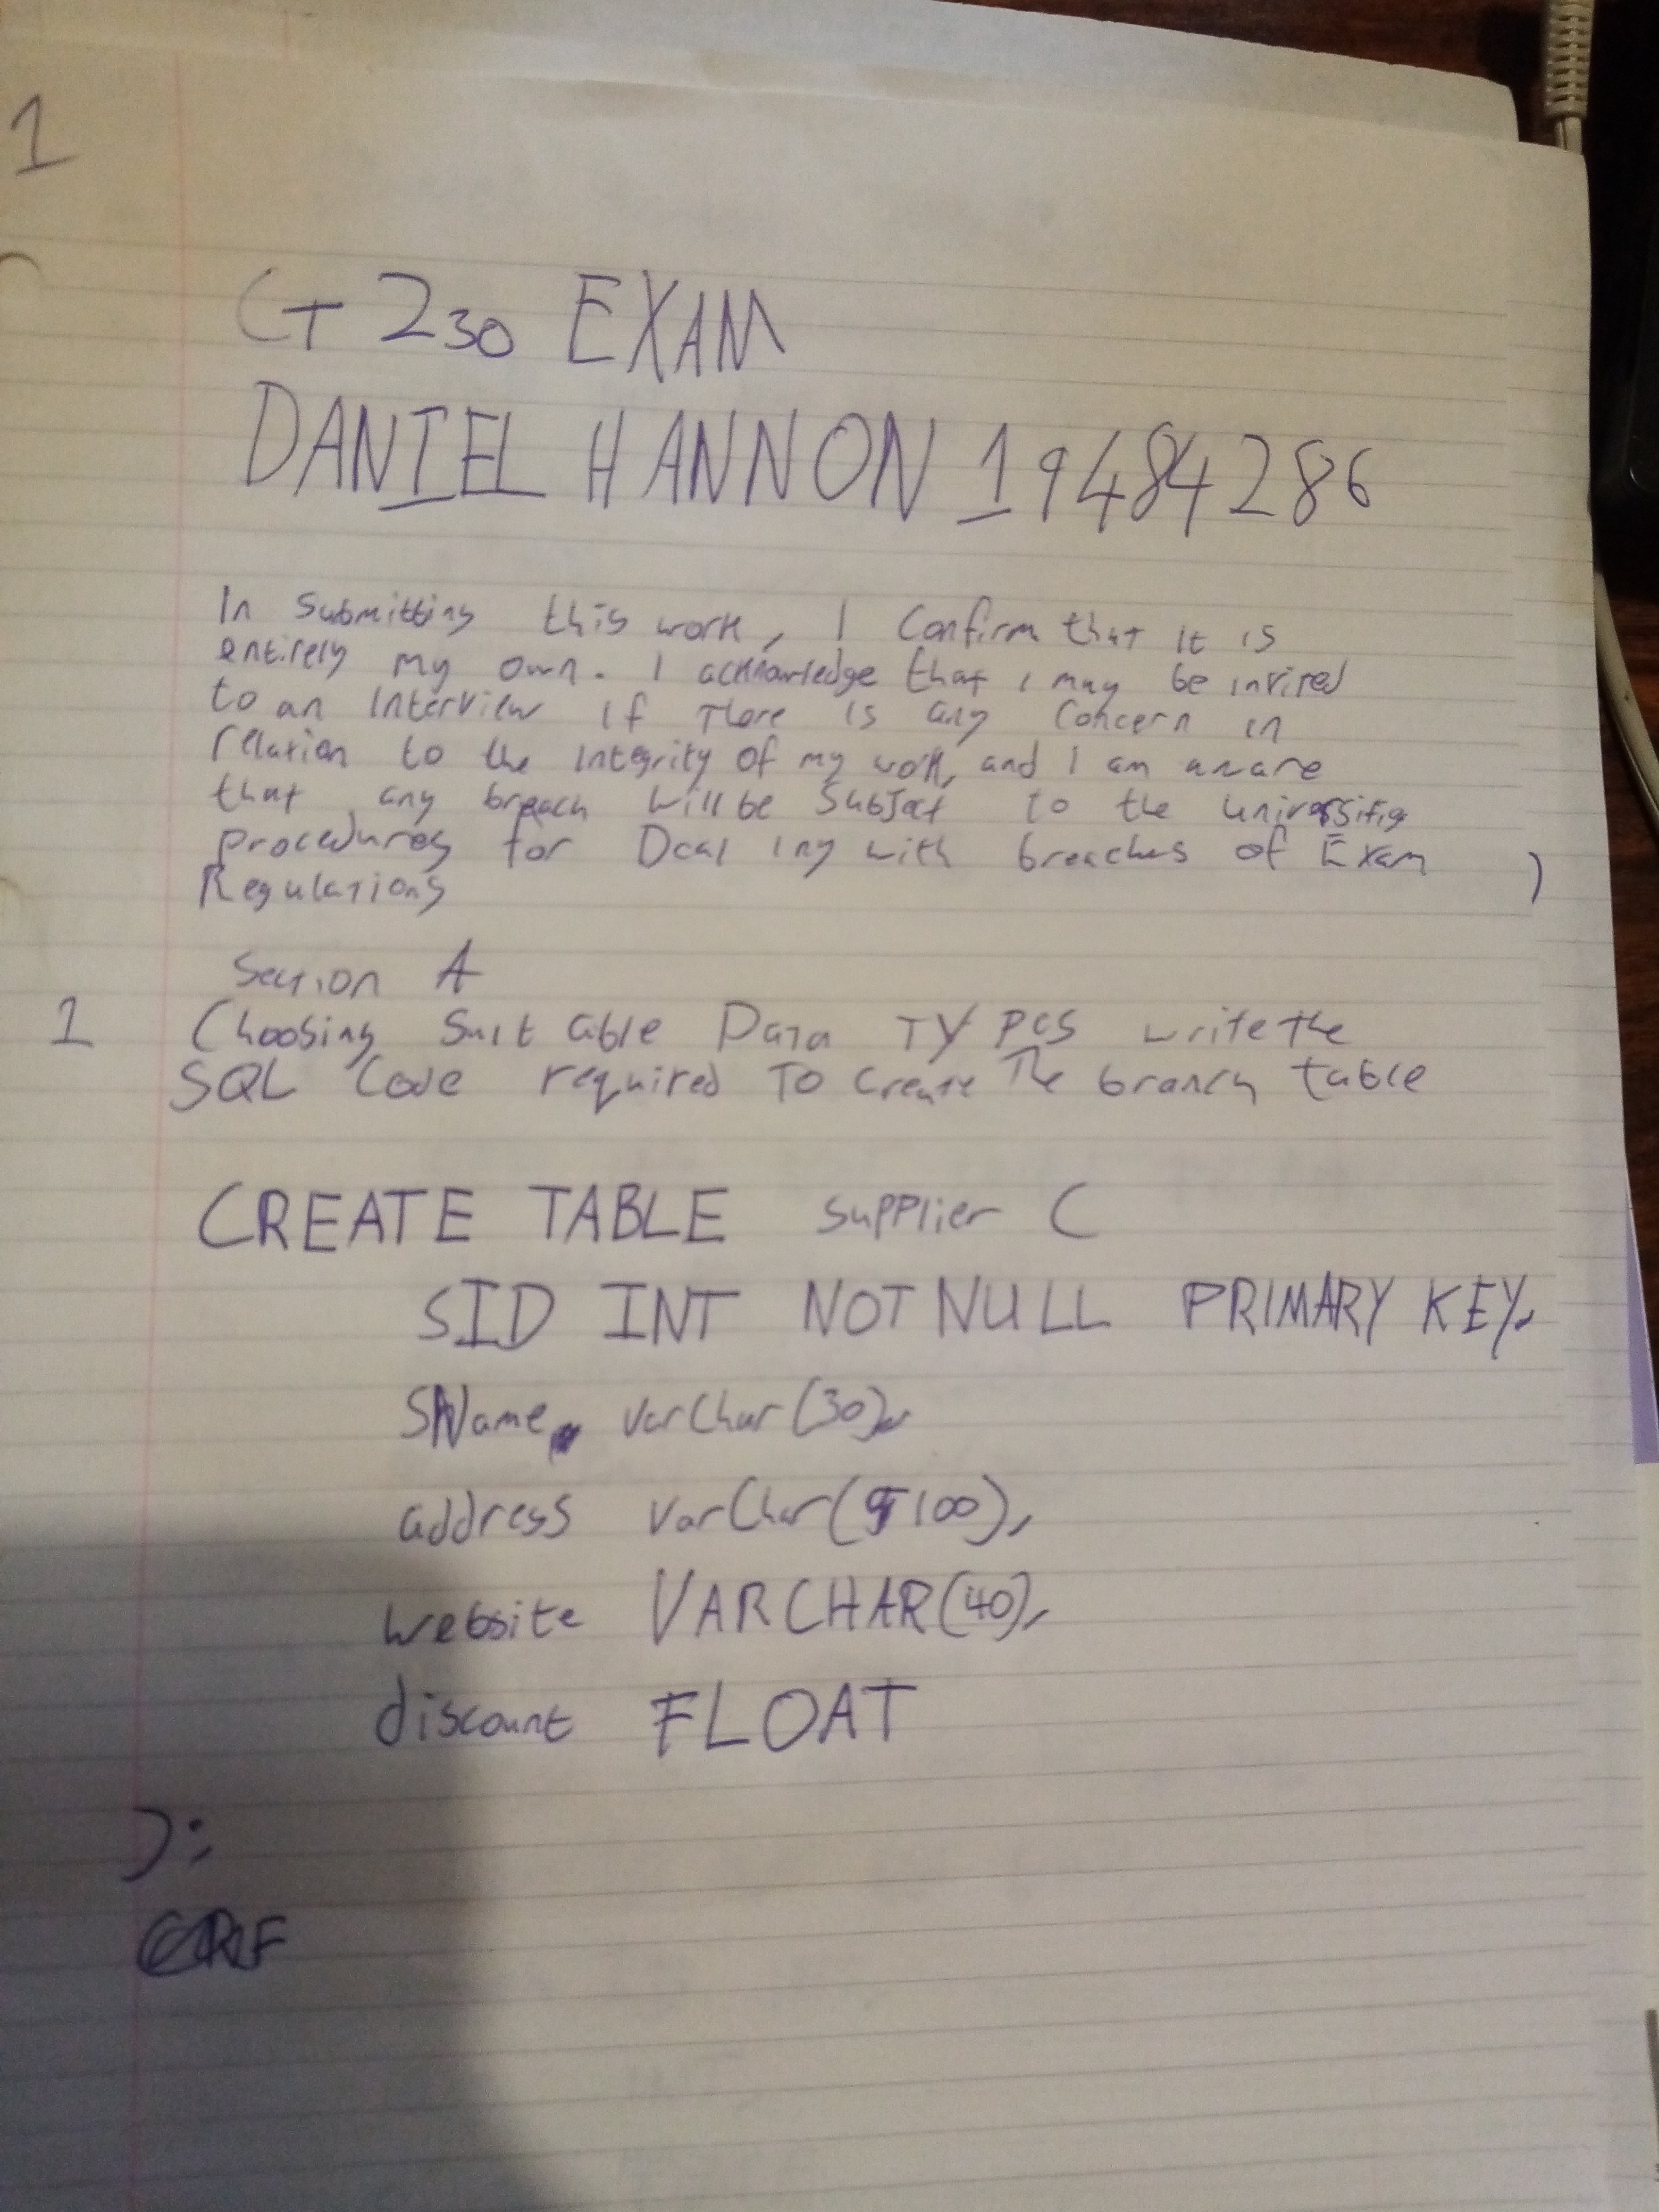 1
CT 230 EXAM
DANIEL HANNON 19484286
In Submitting this work, I Confirm that it is
entirely my own. I acknowledge that I may be invited
to an Interview if There is any Concern in
relation to the Integrity of my work, and I am aware
that any breach will be Subject to the universitys
procedures for Dealing with breaches of Exam
Regulations
Section A
1 Choosing Suitable Data TYPes write the
SQL Code required To Create The branch table
CREATE TABLE supplier (
SID INT NOT NULL PRIMARY KEY,
SName varChar(30),
address varChar(100),
website VARCHAR(40),
discount FLOAT
);